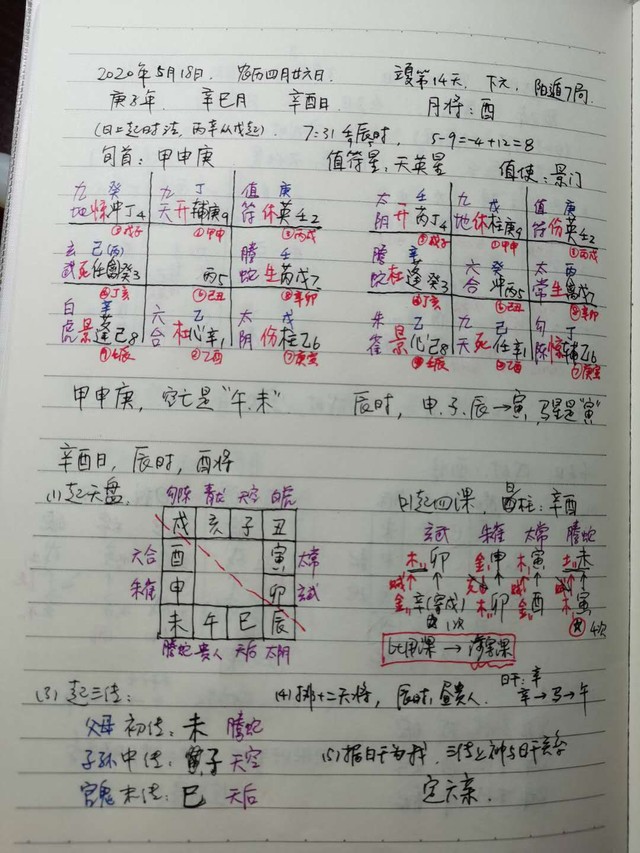 2020年5月18日. 农历四月廿六日. 立夏第14天, 下元, 阳遁7局.
庚子年 辛巳月 辛酉日 月将:酉
(日上起时法, 丙辛从戊起). 7:31 壬辰时, 5-9=-4+12=8
旬首:甲申庚 值符星,天英星 值使:景门
九 癸 九 丁 值 庚 太 壬 九 戊 值 庚
地 惊 冲丁4 天 开 辅庚9 符 休 英壬2 阴 开 芮丁4 地 休 柱庚9 符 伤 英壬2
③戊子 ①甲申 ③丙戌
玄 己(丙) 螣 壬 螣 辛 六 癸 太
武 死 任癸3 丙5 蛇 生 芮戊7 蛇 杜 蓬癸3 合 冲丙5 常 生 禽戊7
④丁亥 ⑥己丑 ⑧辛卯
白 辛 六 乙 太 戊 朱 乙 九 己 勾 丁
虎 景 蓬己8 合 杜 心辛1 阴 伤 柱乙6 雀 景 心己8 天 死 任辛1 陈 惊 辅乙6
⑨壬辰 ②乙酉 ⑦庚寅
甲申庚, 空亡是"午.未" 辰时, 申.子.辰→寅, 马星是"寅"
辛酉日, 辰时, 酉将
(1)起天盘: 勾陈 青龙 天空 白虎 (2)起四课, 日柱:辛酉
戌 亥 子 丑 玄武 朱雀 太常 螣蛇
六合 酉 寅 太常 木 卯 金 申 木 寅 土 未
朱雀 申 卯 玄武 金 辛(寄戌) 木 卯 金 酉 木 寅
未 午 巳 辰 1次 4次
螣蛇 贵人 天后 太阴 比用课→涉害课
(3)起三传: (4)排十二天将, 辰时,昼贵人. 日干:辛
辛→马→午
父母 初传:未 螣蛇
子孙 中传:子 天空 (5)据日干为我, 三传上神与日干关系
官鬼 末传:巳 天后 定六亲.